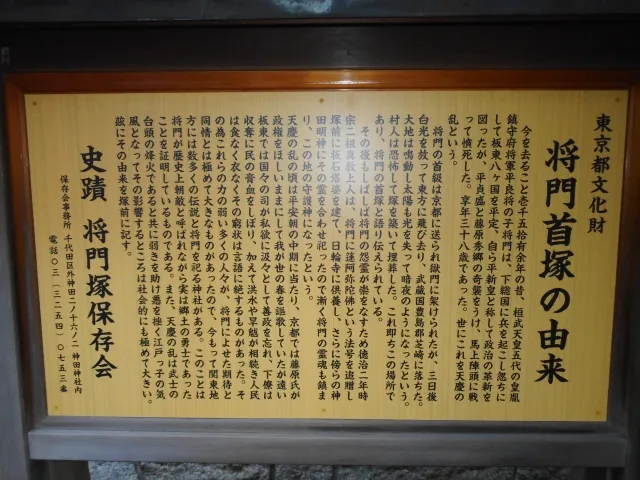 東京都文化財
将門首塚の由来
今を去ること壱千五拾有余年の昔、桓武天皇五代の皇胤
鎮守府将軍平良将の子将門は、下総国に兵を起こし忽ちに
して坂東八ヶ国を平定、自ら平新皇と称して政治の革新を
図ったが、平貞盛と藤原秀郷の奇襲をうけ、馬上陣頭に戦
って憤死した。享年三十八歳であった。世にこれを天慶の
乱という。
将門の首級は京都に送られ獄門に架けられたが、三日後
白光を放って東方に飛び去り、武蔵国豊島郡芝崎に落ちた。
大地は鳴動し太陽も光を失って暗夜のようになったという。
村人は恐怖して塚を築いて埋葬した。これ即ちこの場所で
あり、将門の首塚と語り伝えられている。
その後もしばしば将門の怨霊が祟をなすため徳治二年時
宗二祖真教上人は、将門に蓮阿弥陀佛という法号を追贈し
塚前に板石塔婆を建てて日輪寺に供養し、さらに傍らの神
田明神にその霊を合わせ祀ったので漸く将門の霊魂も鎮ま
り、この地の守護神になったという。
天慶の乱の頃は平安朝の中期に当たり、京都では藤原氏が
政権をほしいままにして我が世の春を謳歌していたが遠い
板東では国々の司が私欲に汲々として善政を忘れ、下僚は
収奪に民の膏血をしぼり、加えて洪水や旱魃が相続き人民
は食なく衣なくその窮状は言語に絶するものがあった。そ
の為これらの力の弱い多くの人々が、将門によせた期待と
同情とは極めて大きなものがあったので、今もって関東地
方には数多くの伝説と将門を祀る神社がある。このことは
将門が歴史上朝敵と呼ばれながら実は郷土の勇士であった
ことを証明しているものである。また、天慶の乱は武士の
台頭の烽火であると共に弱きを助け悪を挫く江戸っ子の気
風となってその影響するところは社会的にも極めて大きい。
茲にその由来を塚前に記す。
史蹟 将門塚保存会
保存会事務所 千代田区外神田二ノ十六ノ二 神田神社内
電話〇三(三二五四)〇七五三番